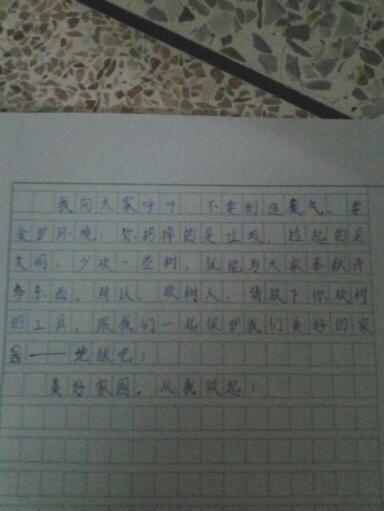 我向大家呼吁，不要制造废气。要
爱护环境，你扔掉的是垃圾，捡起的是
文明，少砍一些树，就能为大家奉献许
多东西，所以，砍树人，请放下你砍树
的工具，跟我们一起保护我们美好的家
园——地球吧！
美好家园，从我做起！